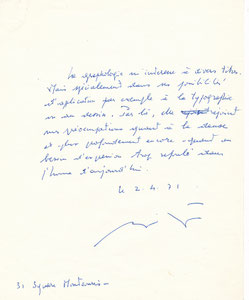 La graphologie m'intéresse à divers titres.
Mais spécialement dans ses possibilités
d'application par exemple à la typographie
ou au dessin. Par là, elle rejoint
mes préoccupations quant à la danse
et plus profondément encore quant au
besoin d'expression trop refoulé dans
l'homme d'aujourd'hui.
le 2.4.71
31 Square Montsouris